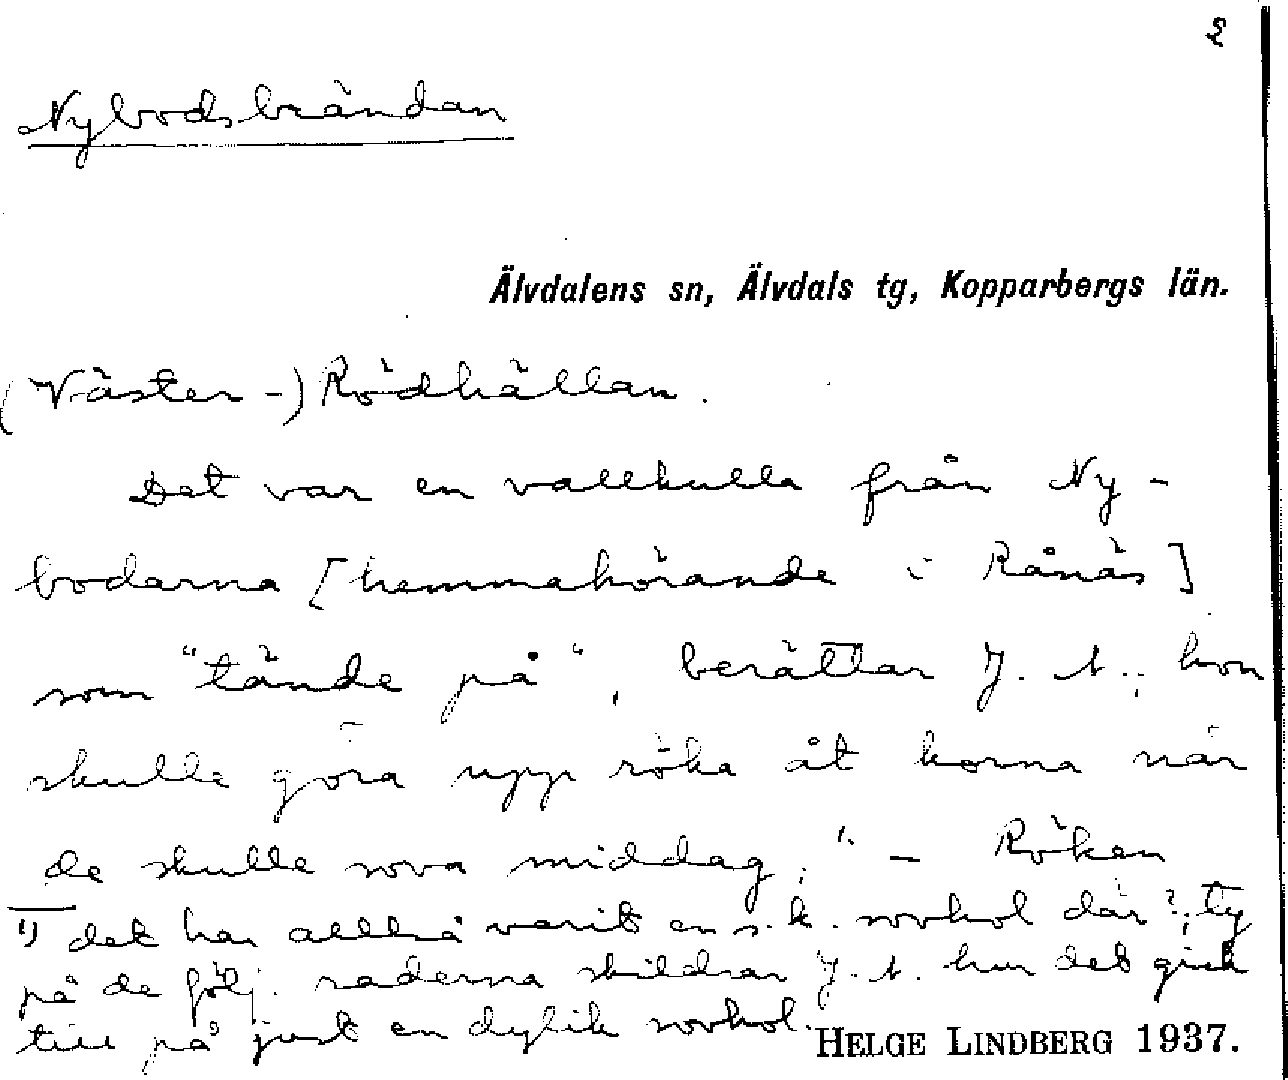 2
Nybodsbrändan
Älvdalens sn, Älvdals tg, Kopparbergs län.
(Väster-) Rödhällan.
Det var en vallkulla från Ny-
bodarna [hemmahörande i Rånäs]
som "tände på", berättar J. A.; hon
skulle göra upp röka åt korna när
de skulle sova middag." – Röken
1) det har alltså varit en s.k. sovhol där?; ty
på de följ. raderna skildrar J. A. hur det gick
till på just en dylik sovhol.
HELGE LINDBERG 1937.